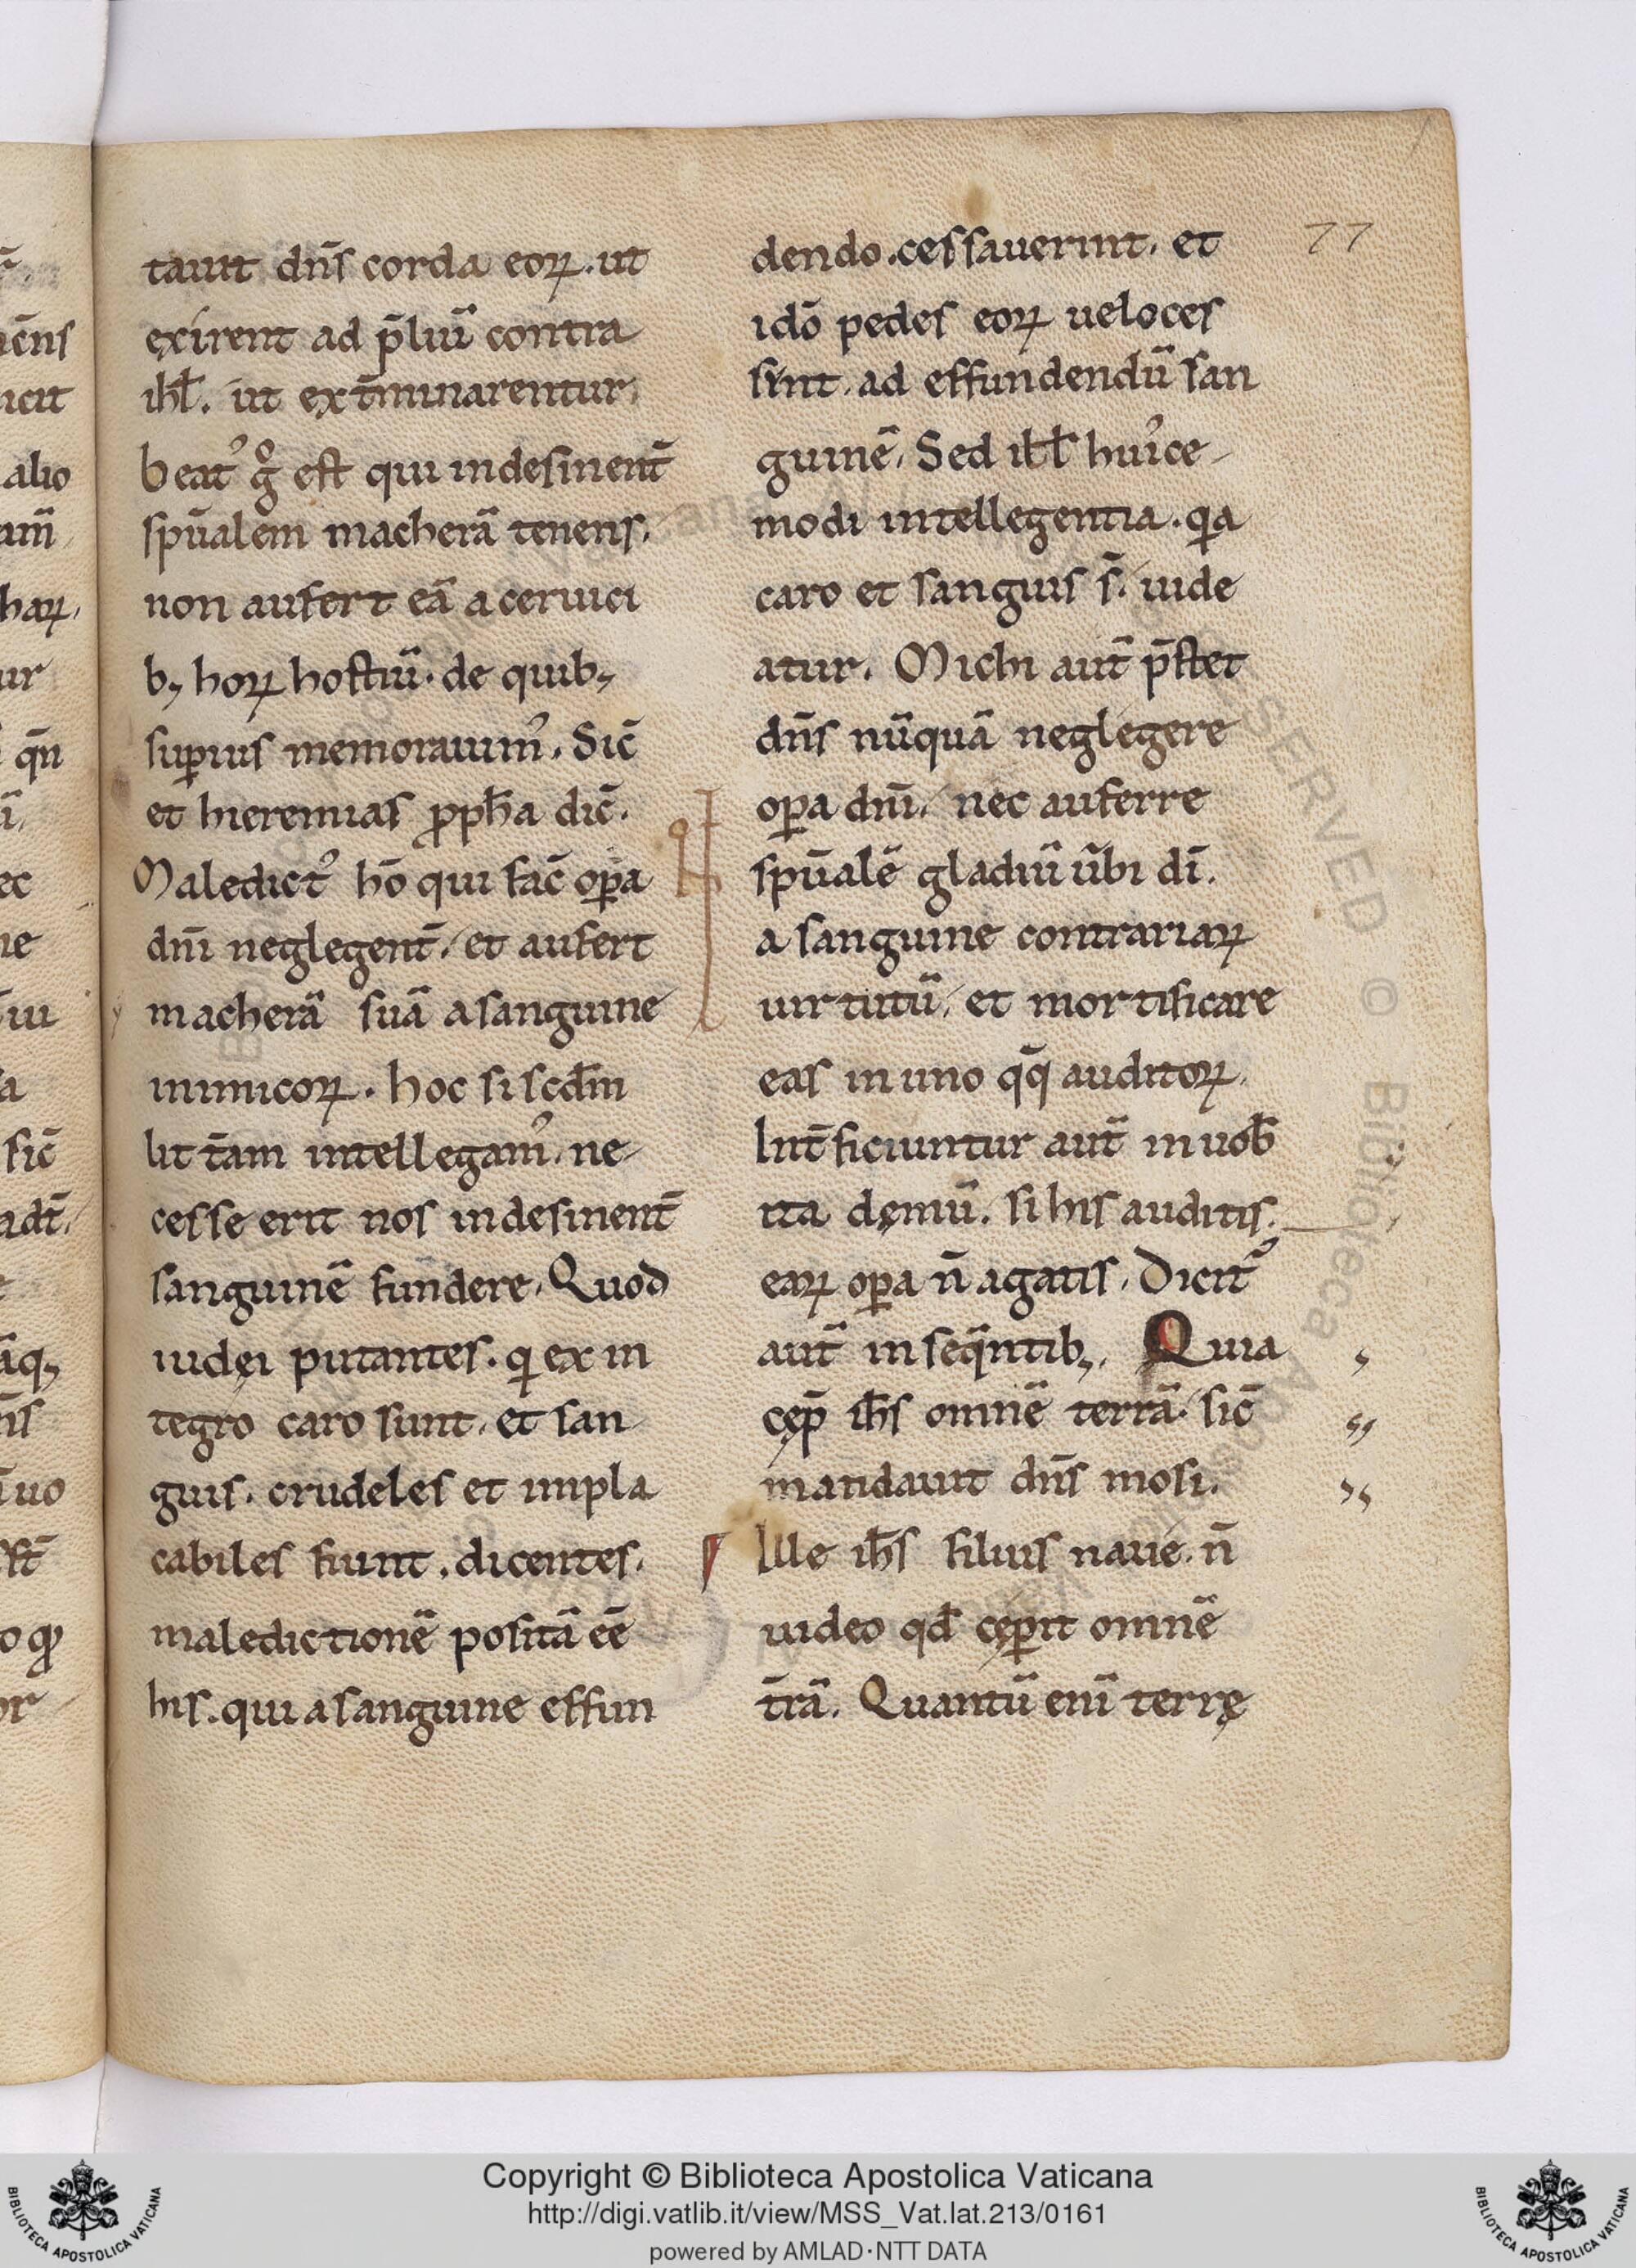 tauit dn̄s corda eoꝝ. ut
exirent ad p̄liū contra
ihl̄. ut ext̄minarentur.
beat᾿ g̊ est qui indesinent̄
sp̄ualem macherā tenens.
non aufert eā a ceruici
b; hoꝝ hostiū. de quib;
suꝑius memorauim᾿. Sic̄
et hieremias ꝓph̄a dic̄.
Maledict᾿ hō qui fac̄ oꝑa
dn̄i neglegent̄. et aufert
macherā suā a sanguine
inimicoꝝ. hoc si scd̄m
litt̄am intellegam᾿. ne
cesse erit nos indesinent̄
sanguinē fundere. Quod
iudęi putantes. qi ex in
tegro caro sunt. et san
guis. crudeles et impla
cabiles fiunt. dicentes.
maledictionē positā eē
his. qui a sanguine effun
dendo. cessauerint. et
idō pedes eoꝝ ueloces
sint. ad effundendū san
guinē. Sed ill̄ hui᾿ce
modi intellegentia. qia
caro et sanguis s̄. iude
atur. Michi aut̄ p̄stet
dn̄s nūquā neglegere
oꝑa dn̄i. nec auferre
sp̄ualē gladiū ūbi dī.
a sanguine contrariaꝝ
uirtutū. et mortificare
eas in uno qq̄ auditoꝝ.
Int̄ficiuntur aut̄ in uob̄
ita dęmū. si his auditis.
eaꝝ oꝑa n̄ agatis. Dicit᷒
aut̄ in seq̄ntib;. Quia
cęp̄ ih̄s omnē terrā. sic̄
mandauit dn̄s mosi.
Ille ih̄s filius naue. n̄
uideo qd̄ cęꝑit omnē
t̄rā. Quantū enī terrę
77
Copyright © Biblioteca Apostolica Vaticana
http://digi.vatlib.it/view/MSS_Vat.lat.213/0161
powered by AMLAD·NTT DATA
BIBLIOTECA APOSTOLICA VATICANA
BIBLIOTECA APOSTOLICA VATICANA